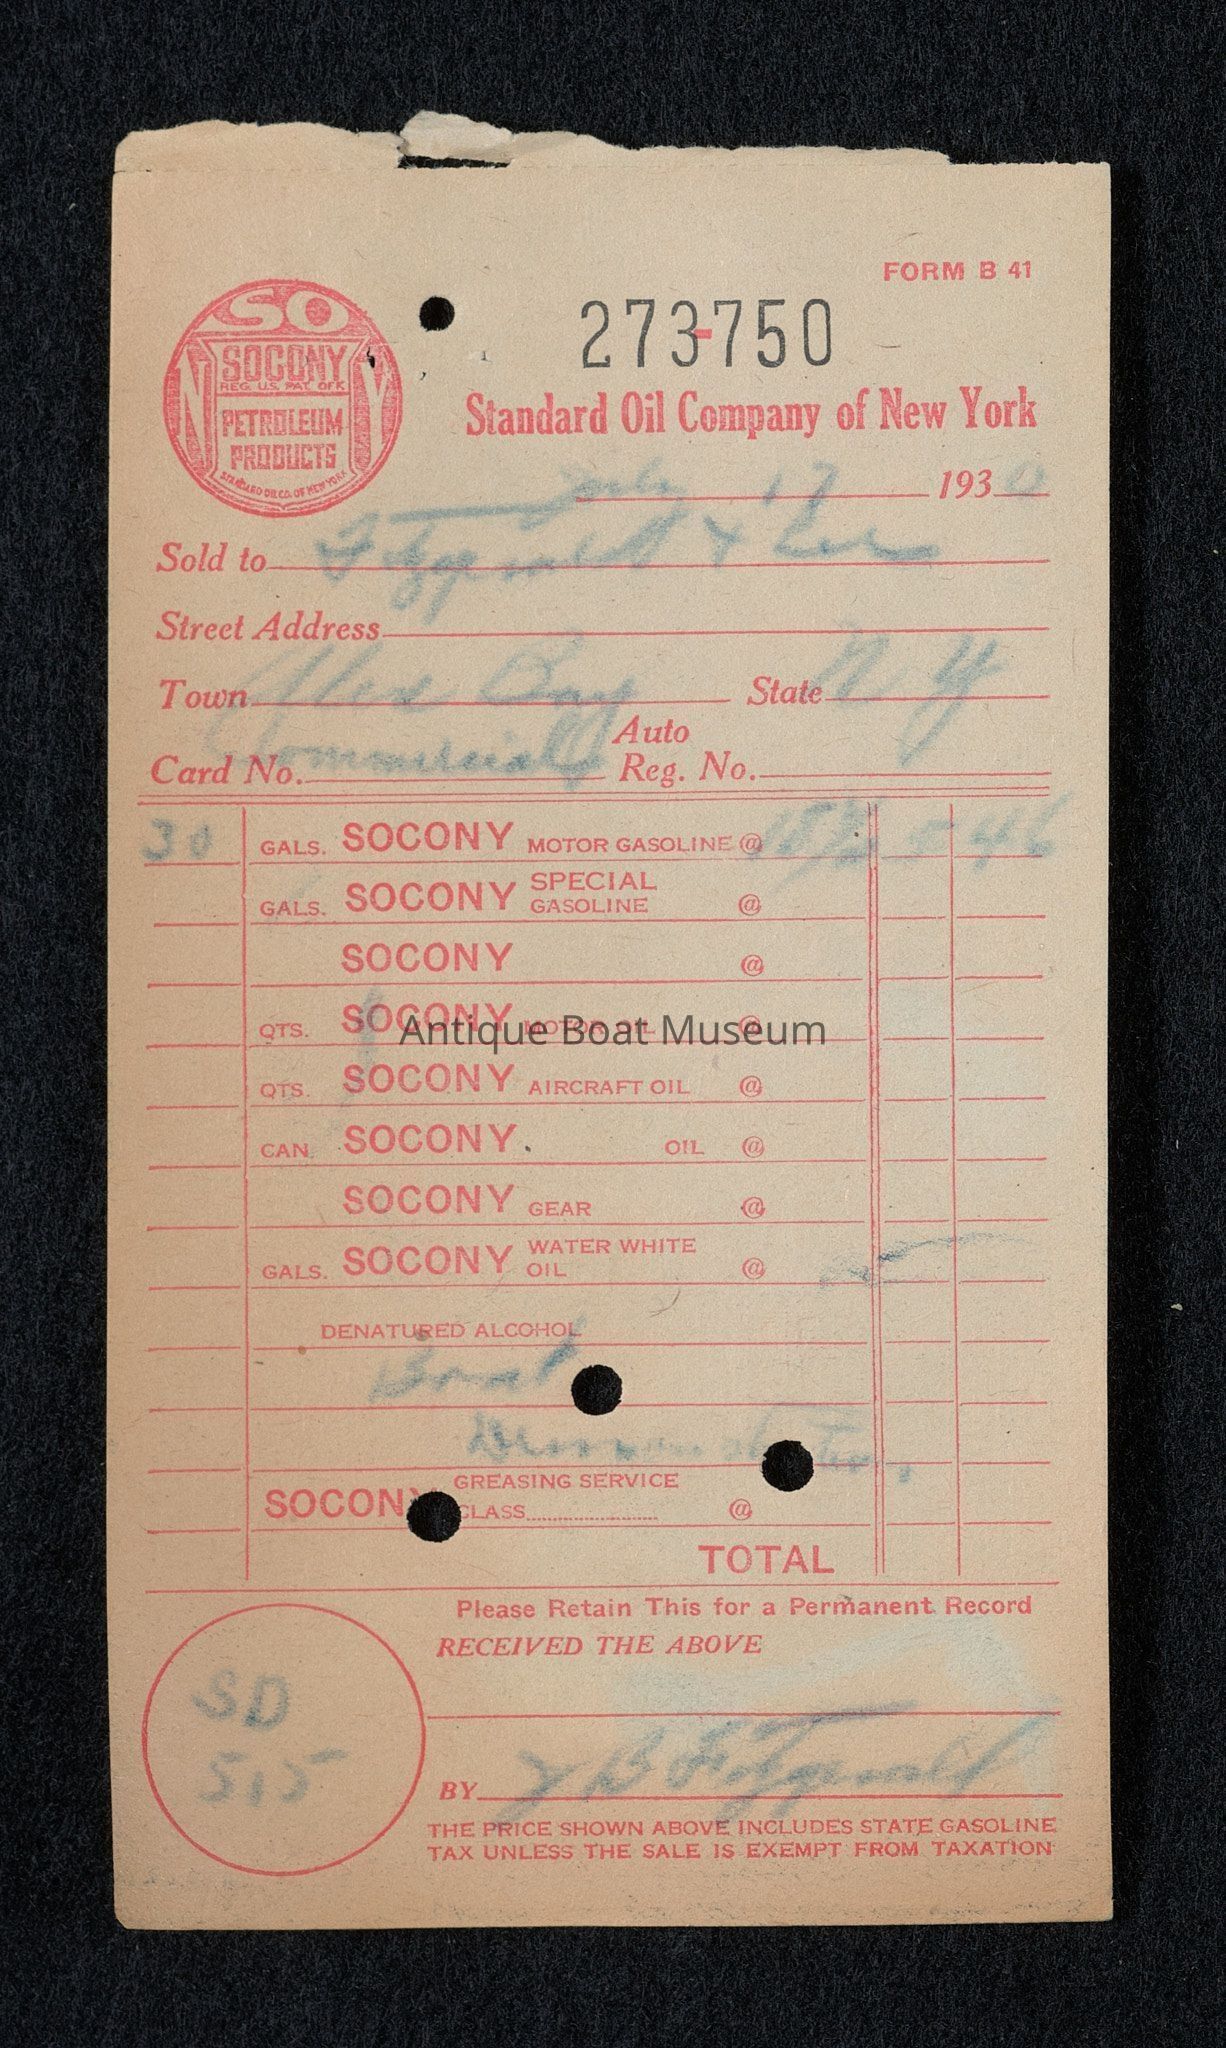 FORM B 41
SO
SOCONY
REG. U.S. PAT. OFF.
N Y
PETROLEUM
PRODUCTS
STANDARD OIL CO. OF NEW YORK
273-750
Standard Oil Company of New York
July 17 1930
Sold to Fitzgerald & Lee
Street Address
Town Alex Bay State N Y
Auto
Card No. Commercial Reg. No.
30 GALS. SOCONY MOTOR GASOLINE @ 5 46
GALS. SOCONY SPECIAL GASOLINE @
SOCONY @
QTS. SOCONY MOTOR OIL @
Antique Boat Museum
QTS. SOCONY AIRCRAFT OIL @
CAN. SOCONY. OIL @
SOCONY GEAR @
GALS. SOCONY WATER WHITE OIL @
DENATURED ALCOHOL
Boat
Demonstration
GREASING SERVICE
SOCONY CLASS @
TOTAL
Please Retain This for a Permanent Record
RECEIVED THE ABOVE
SD
515
BY J B Fitzgerald
THE PRICE SHOWN ABOVE INCLUDES STATE GASOLINE
TAX UNLESS THE SALE IS EXEMPT FROM TAXATION